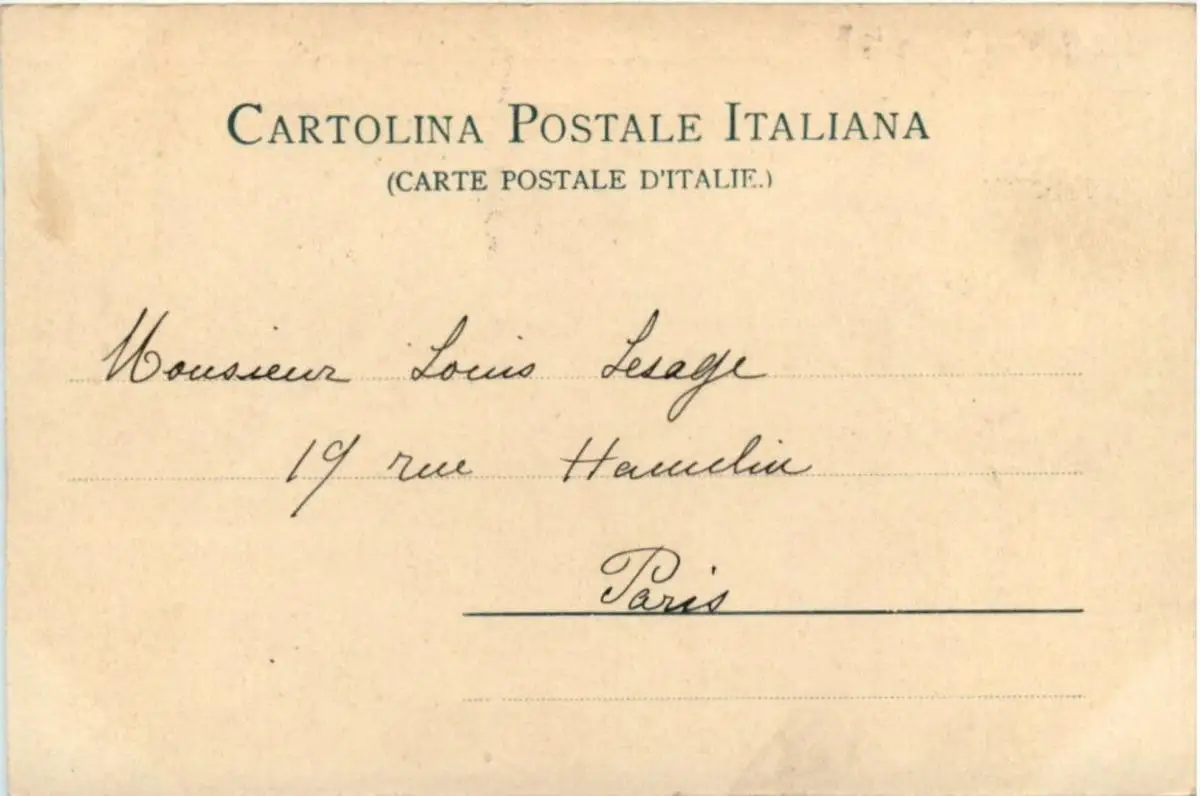 CARTOLINA POSTALE ITALIANA
(CARTE POSTALE D'ITALIE.)
Monsieur Louis Lesage
19 rue Hamelin
Paris